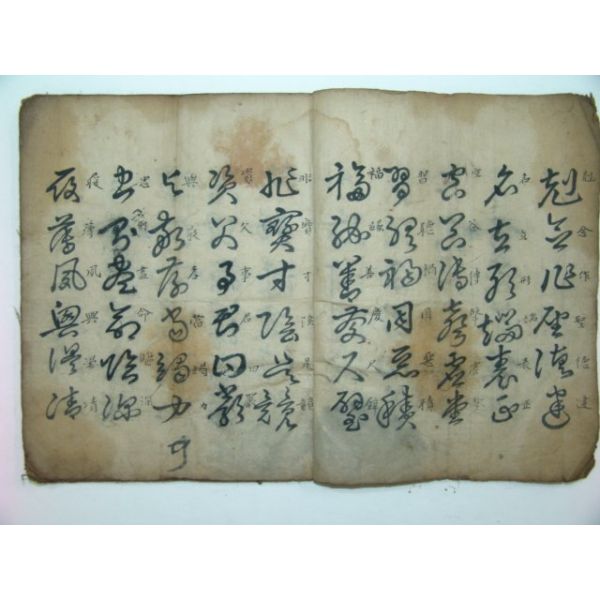 剋念作聖德建
名立形端表正
空谷傳聲虛堂
習聽禍因惡積
福緣善慶尺璧
非寶寸陰是競
資父事君曰嚴
與敬孝當竭力
忠則盡命臨深
履薄夙興溫凊